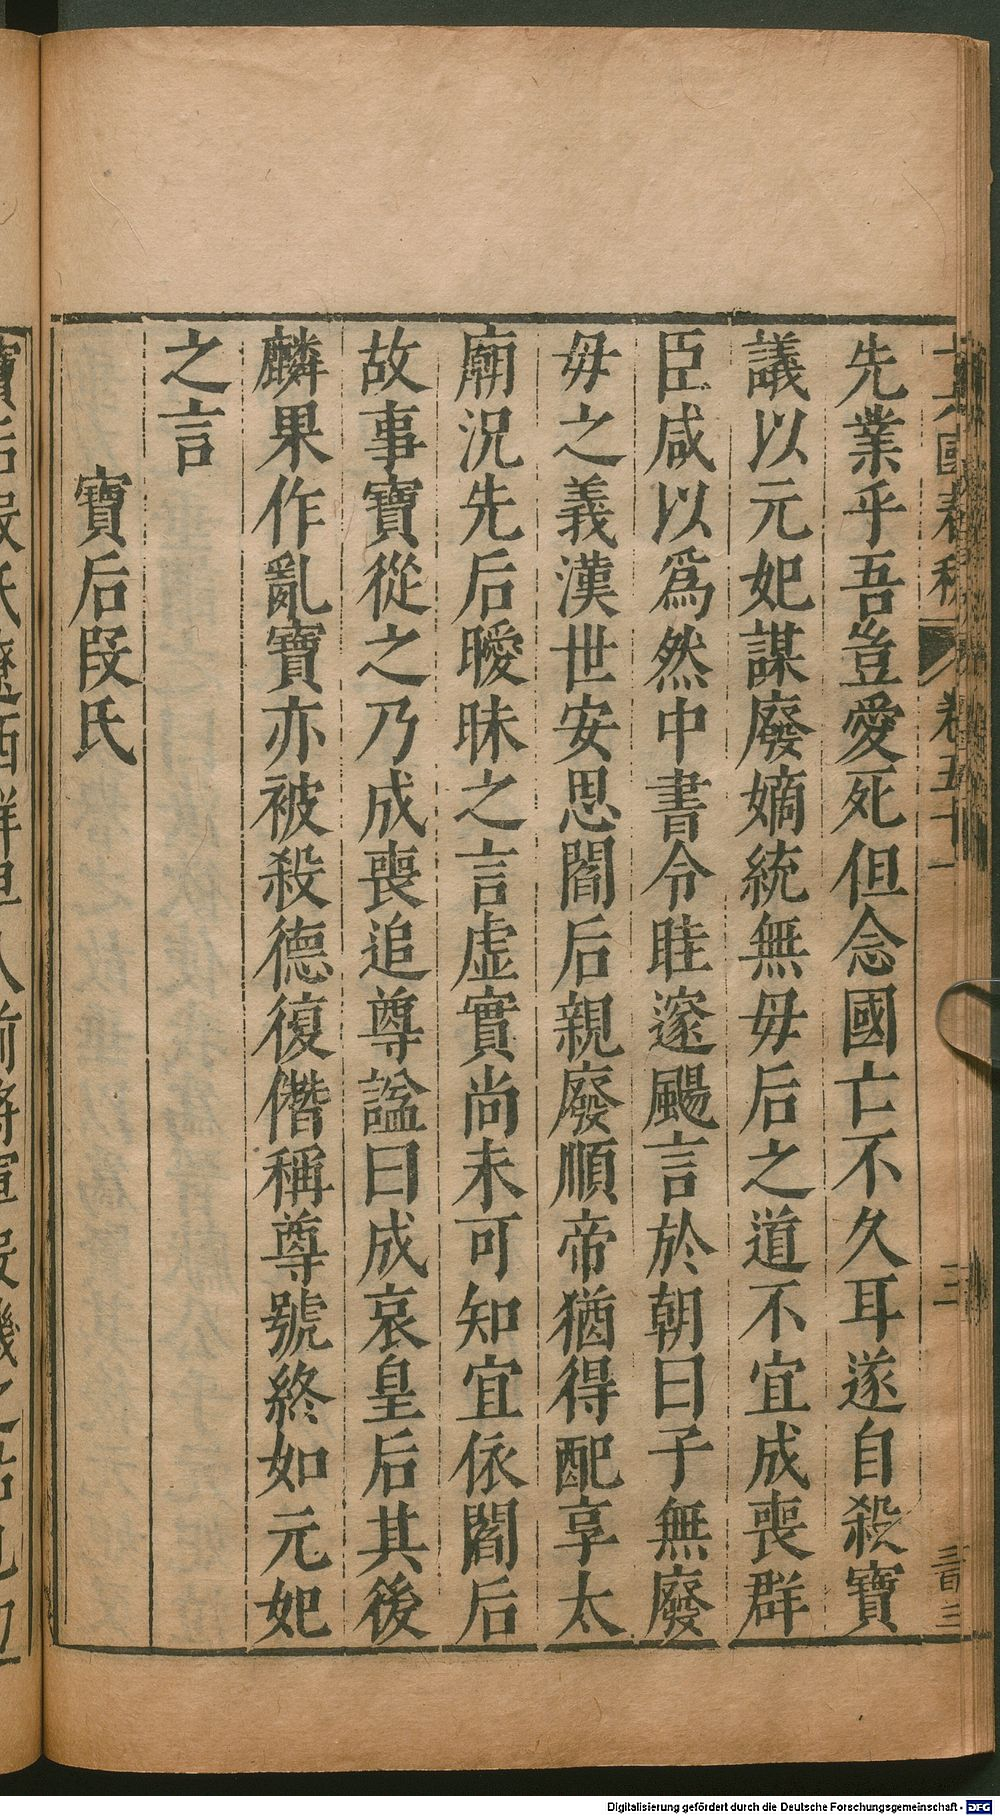 十六國春秋 卷五十一 三 三百三
先業乎吾豈愛死但念國亡不久耳遂自殺寶
議以元妃謀廢嫡統無毋后之道不宜成喪群
臣咸以爲然中書令眭邃颺言於朝曰子無廢
毋之義漢世安思閻后親廢順帝猶得配享太
廟況先后曖昧之言虛實尚未可知宜依閻后
故事寶從之乃成喪追尊諡曰成哀皇后其後
麟果作亂寶亦被殺德復僭稱尊號終如元妃
之言
寶后段氏
寶后段氏遼西鮮卑人前將軍段
Digitalisierung gefördert durch die Deutsche Forschungsgemeinschaft - DFG